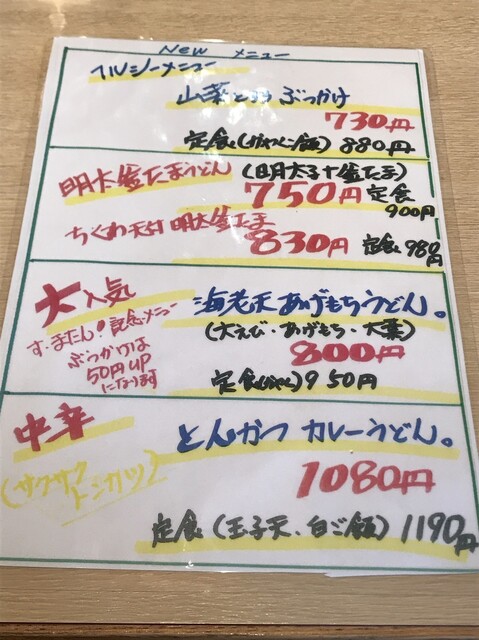 New メニュー
ヘルシーメニュー
山菜とろろ ぶっかけ
730円
定食(かやくご飯) 880円
明太釜たまうどん (明太子+釜たま)
750円 定食
900円
ちくわ天付 明太釜たま
830円 定食 980円
大人気 海老天あげもちうどん。
す・またん!記念メニュー (大えび・あげもち・大葉)
ぶっかけは 800円
50円UP
になります 定食(かやく) 950円
中辛 とんかつ カレーうどん。
(サクサク
トンカツ) 1080円
定食(玉子天、白ご飯) 1190円